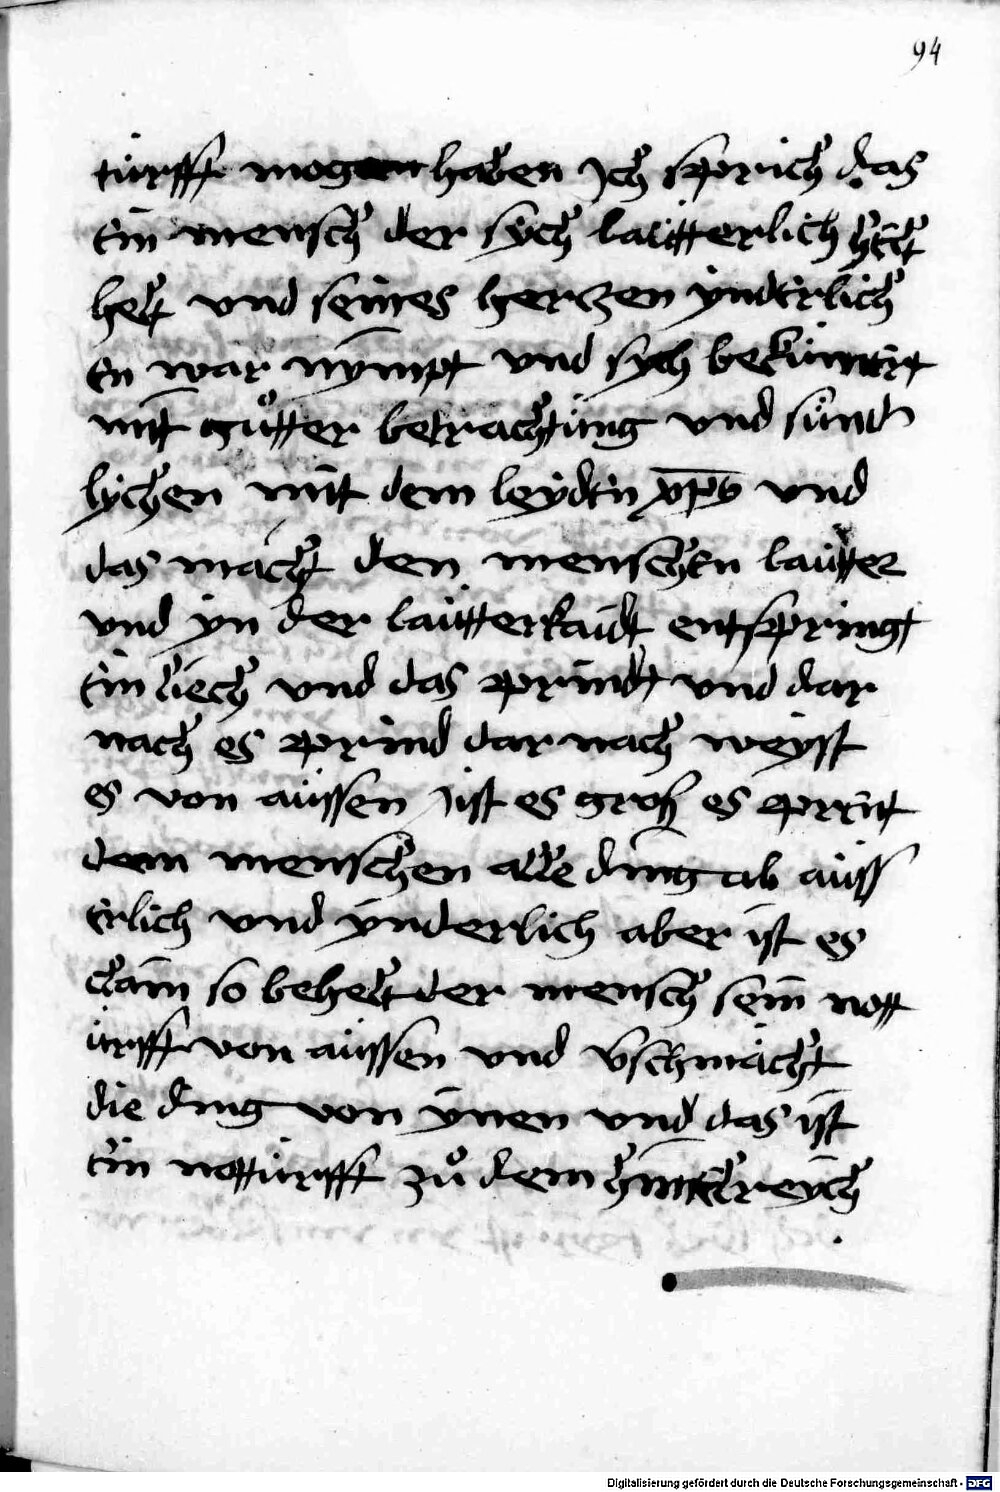 94
türfft mogen haben Jch sprich das
ein mensch der sych lautterlich
helt vnd seines herczen ynderlich
en war nympt vnd sych bekümert
mit gůtter betrachtung vnd sünd
lychen mit dem leyden xp̄s vnd
das macht den menschen lautter
vnd yn der lautterkaidt entspringt
ein liech vnd das prindt vnd dar
nach es prind dar nach weyst
es von aussen Jst es groß es prent
dem menschen alle ding ab auss
erlich vnd ynderlich aber ist es
clain so behelt der mensch sein nott
ürfft von aussen vnd v̄schmächt
die ding von ynen vnd das ist
ein nottürfft zů dem himelreych
Digitalisierung gefördert durch die Deutsche Forschungsgemeinschaft - DFG